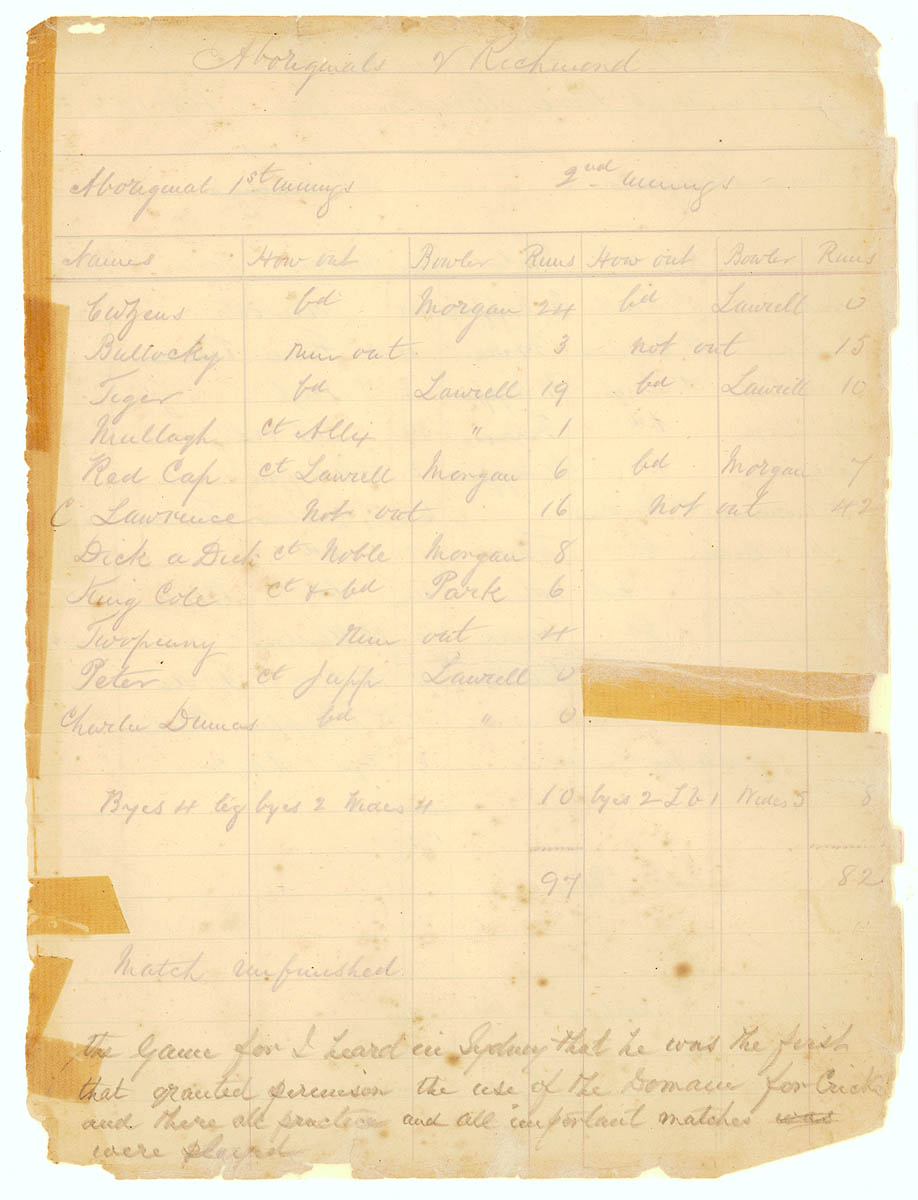 Aboriginals v Richmond
Aboriginal 1st innings 2nd innings
Names How out Bowler Runs How out Bowler Runs
Cuzens bd Morgan 24 bd Lawrell 0
Bullocky run out 3 not out 15
Tiger bd Lawrell 19 bd Lawrell 10
Mullagh ct Allix " 1
Red Cap ct Lawrell Morgan 6 bd Morgan 7
C Lawrence Not out 16 Not out 42
Dick a Dick ct Noble Morgan 8
King Cole ct & bd Park 6
Twopenny run out 4
Peter ct Jupp Lawrell 0
Charlie Dumas bd " 0
Byes 4 leg byes 2 Wides 4 10 byes 2 L b 1 Wides 5 8
97 82
Match unfinished
the Game for I heard in Sydney that he was the first
that granted permison the use of the Domain for Crick
and there all practice and all important matches was
were played